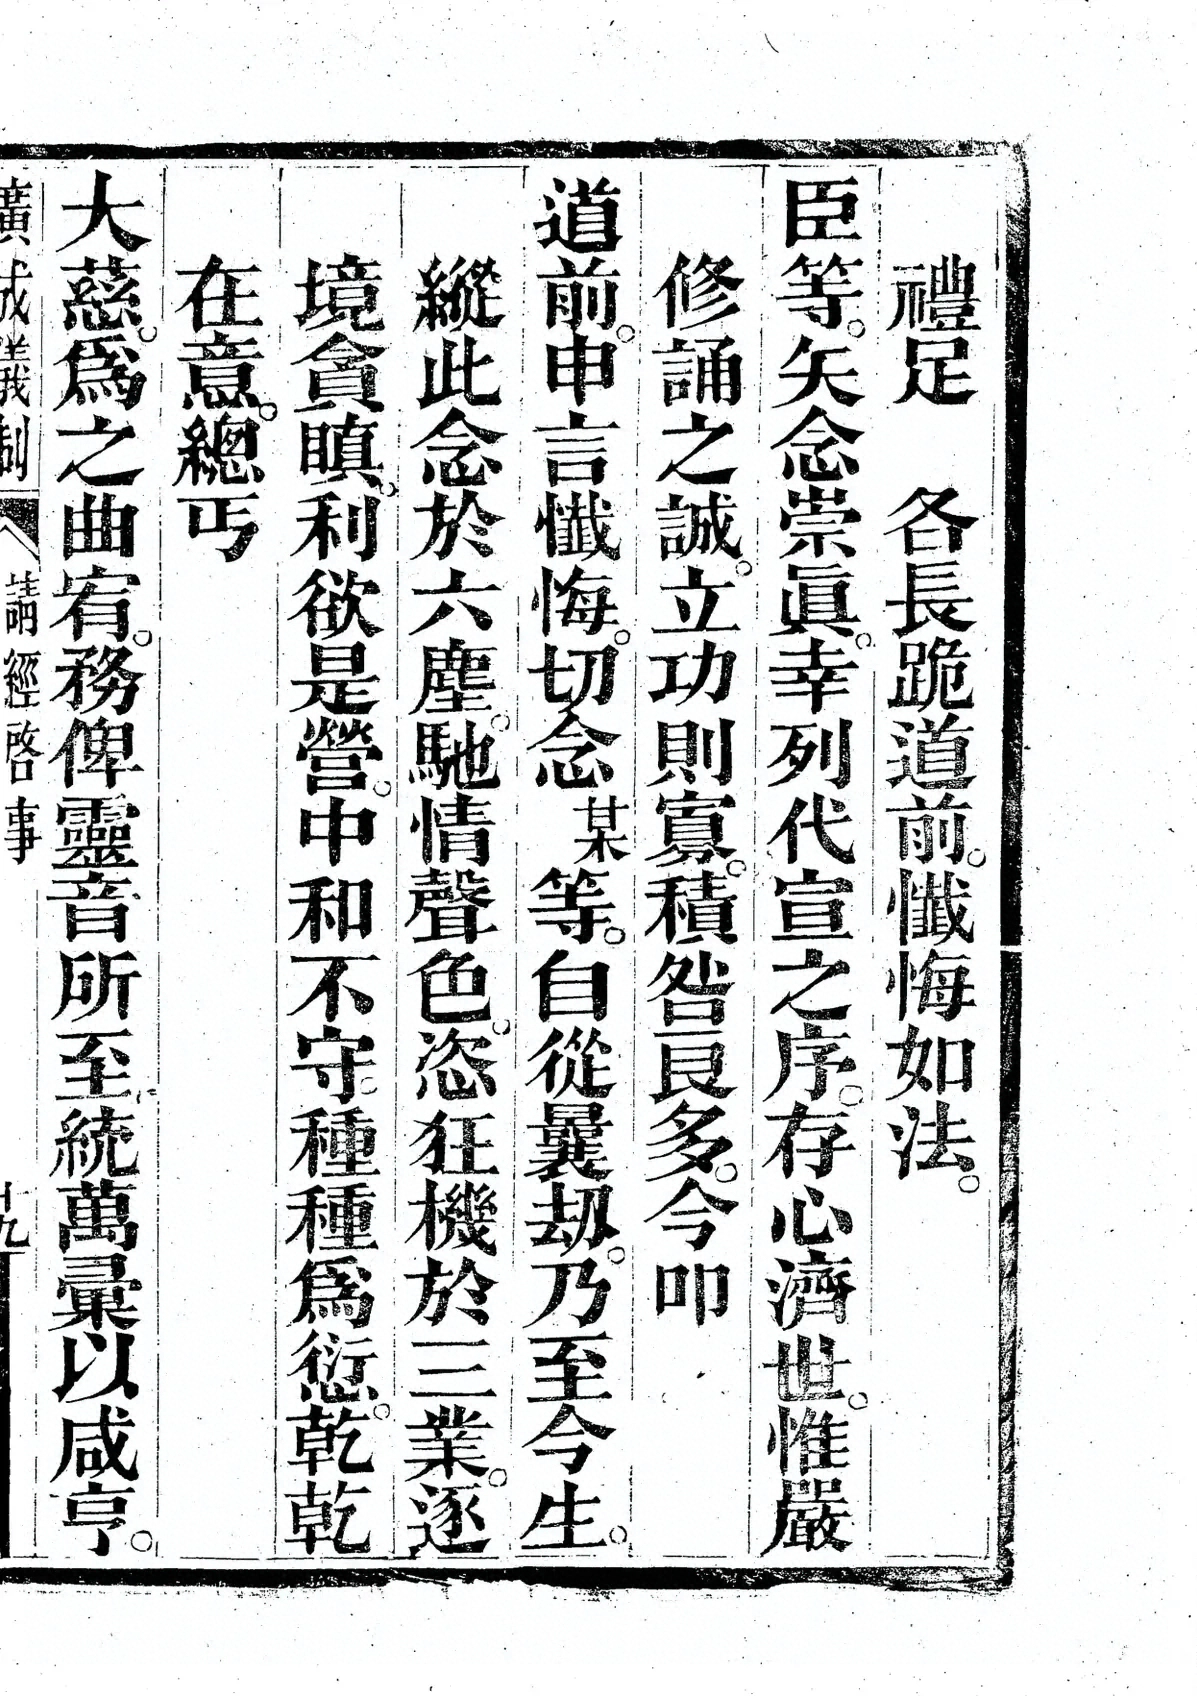 禮足　各長跪道前。懺悔如法。
臣等。矢念崇眞。幸列代宣之序。存心濟世。惟嚴
修誦之誠。立功則寡。積咎艮多。今叩
道前。申言懺悔。切念某等。自從曩刧。乃至今生。
縱此念於六塵。馳情聲色。恣狂機於三業。逐
境貪瞋。利欲是營。中和不守。種種爲愆。乾乾
在意。總丐
大慈。爲之曲宥。務俾靈音所至。統萬彙以咸亨。
廣成儀制　請經啓事　十九